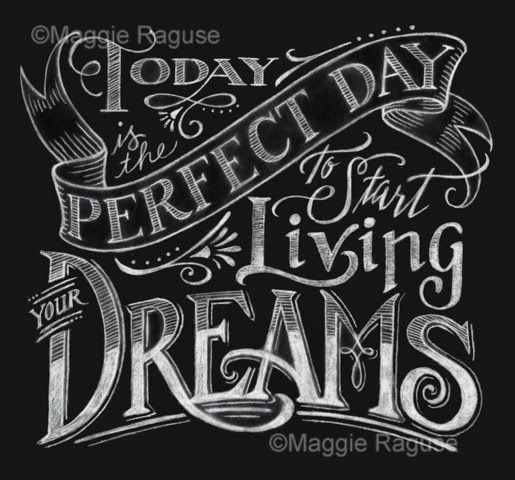 ©Maggie Raguse
TODAY
is
the
PERFECT DAY
to Start
Living
YOUR
DREAMS
©Maggie Raguse